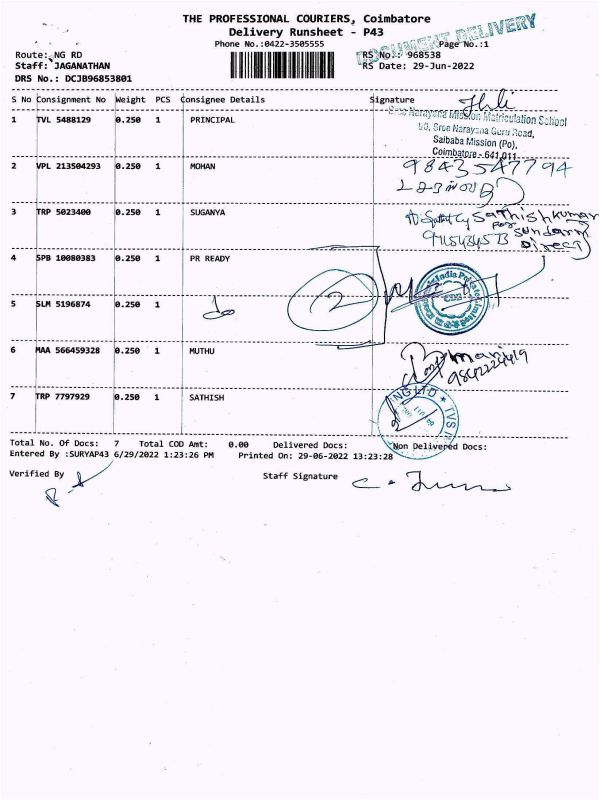 THE PROFESSIONAL COURIERS, Coimbatore
Delivery Runsheet - P43
DOCUMENT DELIVERY
Phone No.:0422-3505555 Page No.:1
Route: NG RD RS No.: 968538
Staff: JAGANATHAN RS Date: 29-Jun-2022
DRS No.: DCJB96853801
S No Consignment No Weight PCS Consignee Details Signature
1 TVL 5488129 0.250 1 PRINCIPAL
Sree Narayana Mission Matriculation School
Sree Narayana Guru Road,
Saibaba Mission (Po),
Coimbatore - 641 011
2 VPL 213504293 0.250 1 MOHAN 9843547794
3 TRP 5023400 0.250 1 SUGANYA Sathishkumar
for
Sundaram
Direct
4 SPB 10080383 0.250 1 PR READY
2
India Private Limited
5 SLM 5196874 0.250 1 do
6 MAA 566459328 0.250 1 MUTHU
7 TRP 7797929 0.250 1 SATHISH
NG LTD ★ TVS
Total No. Of Docs: 7 Total COD Amt: 0.00 Delivered Docs: Non Delivered Docs:
Entered By :SURYAP43 6/29/2022 1:23:26 PM Printed On: 29-06-2022 13:23:28
Verified By Staff Signature